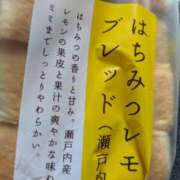 はちみつレモ
ブレッド（瀬戸内
はちみつの香りと甘み。瀬戸内産
レモンの果皮と果汁の爽やかな味わ
ミミまでしっとりやわらかい